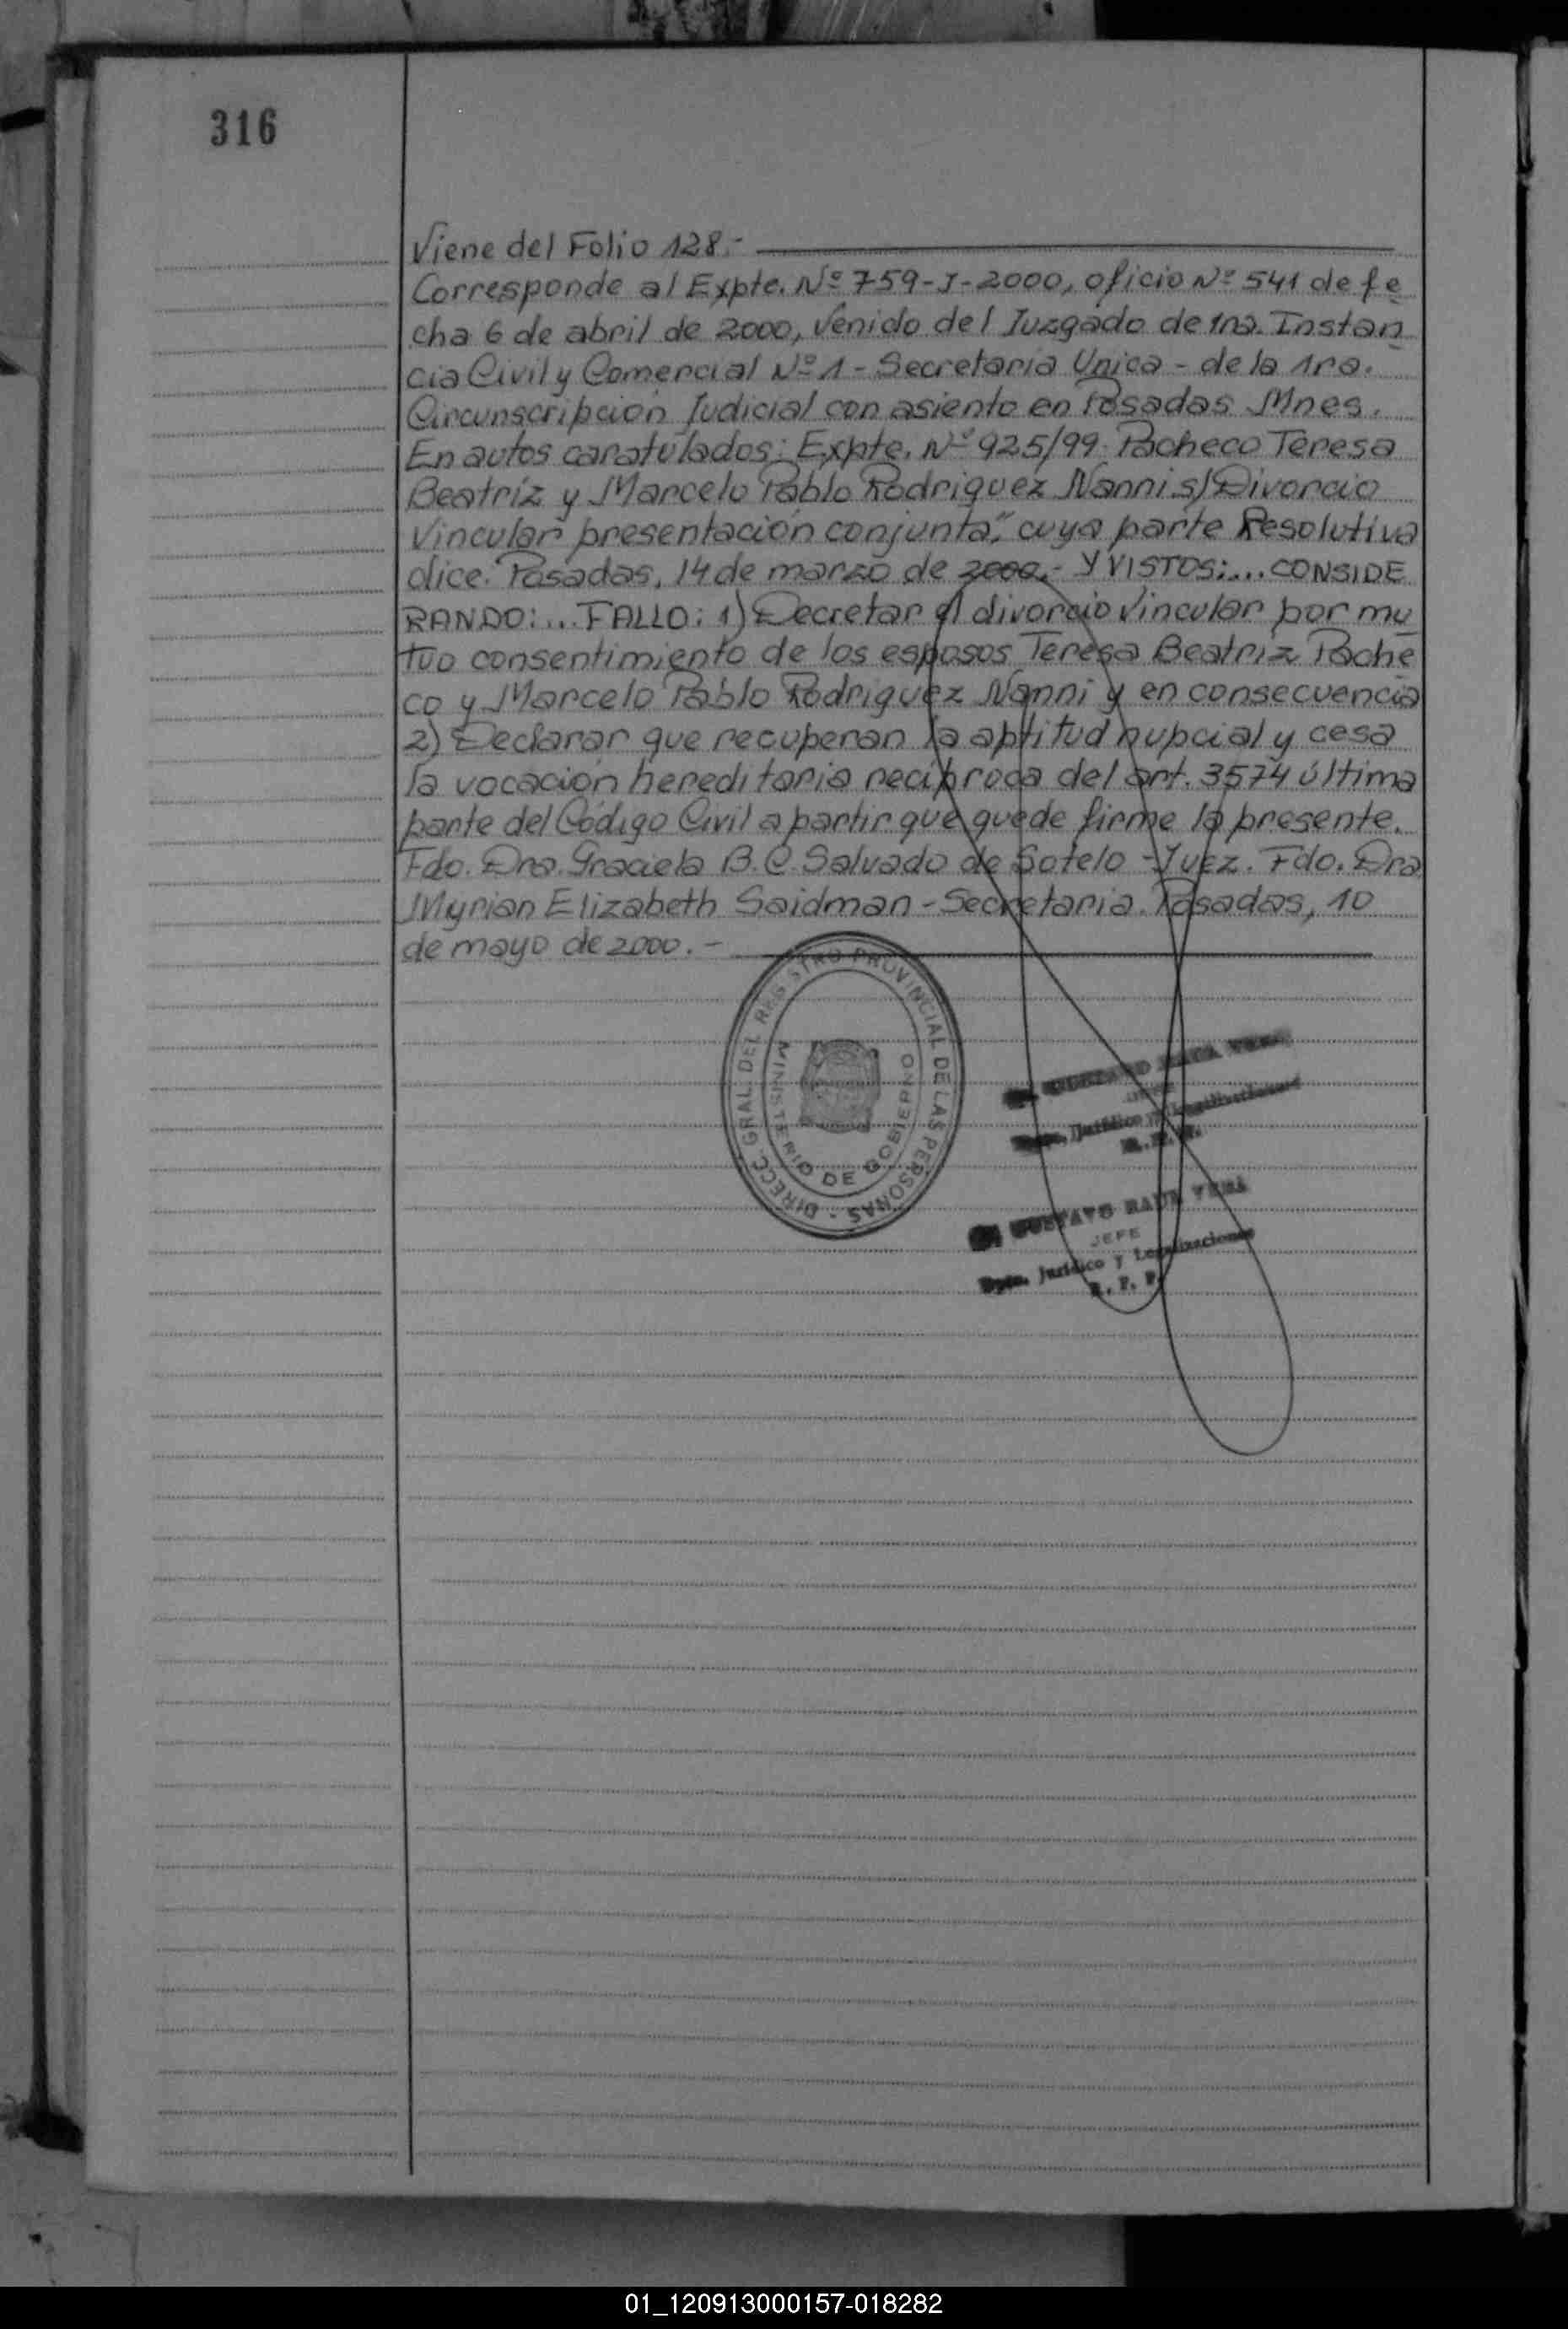 316
Viene del Folio 128.-
Corresponde al Expte. Nº 759-J-2000, oficio Nº 541 de fe
cha 6 de abril de 2000, venido del Juzgado de 1ra. Instan
cia Civil y Comercial Nº 1 - Secretaría Unica - de la 1ra.
Circunscripción Judicial con asiento en Posadas Mnes.
En autos caratulados: Expte. Nº 925/99. Pacheco Teresa
Beatríz y Marcelo Pablo Rodriguez Nanni s/Divorcio
Vincular presentación conjunta", cuya parte Resolutiva
dice. Posadas, 14 de marzo de 2000.- Y VISTOS:... CONSIDE
RANDO:... FALLO: 1) Decretar el divorcio vincular por mu
tuo consentimiento de los esposos Teresa Beatriz Pache
co y Marcelo Pablo Rodriguez Nanni y en consecuencia
2) Declarar que recuperan la aptitud nupcial y cesa
la vocación hereditaria recíproca del art. 3574 última
parte del Código Civil a partir que quede firme la presente.
Fdo. Dra. Graciela B. C. Salvado de Sotelo - Juez. Fdo. Dra
Myrian Elizabeth Saidman - Secretaria. Posadas, 10
de mayo de 2000. -
DIRECC. GRAL. DEL REGISTRO PROVINCIAL DE LAS PERSONAS -
MINISTERIO DE GOBIERNO
GUSTAVO RAUL VERA
JEFE
Dpto. Jurídico y Legalizaciones
R. P. P.
01_120913000157-018282